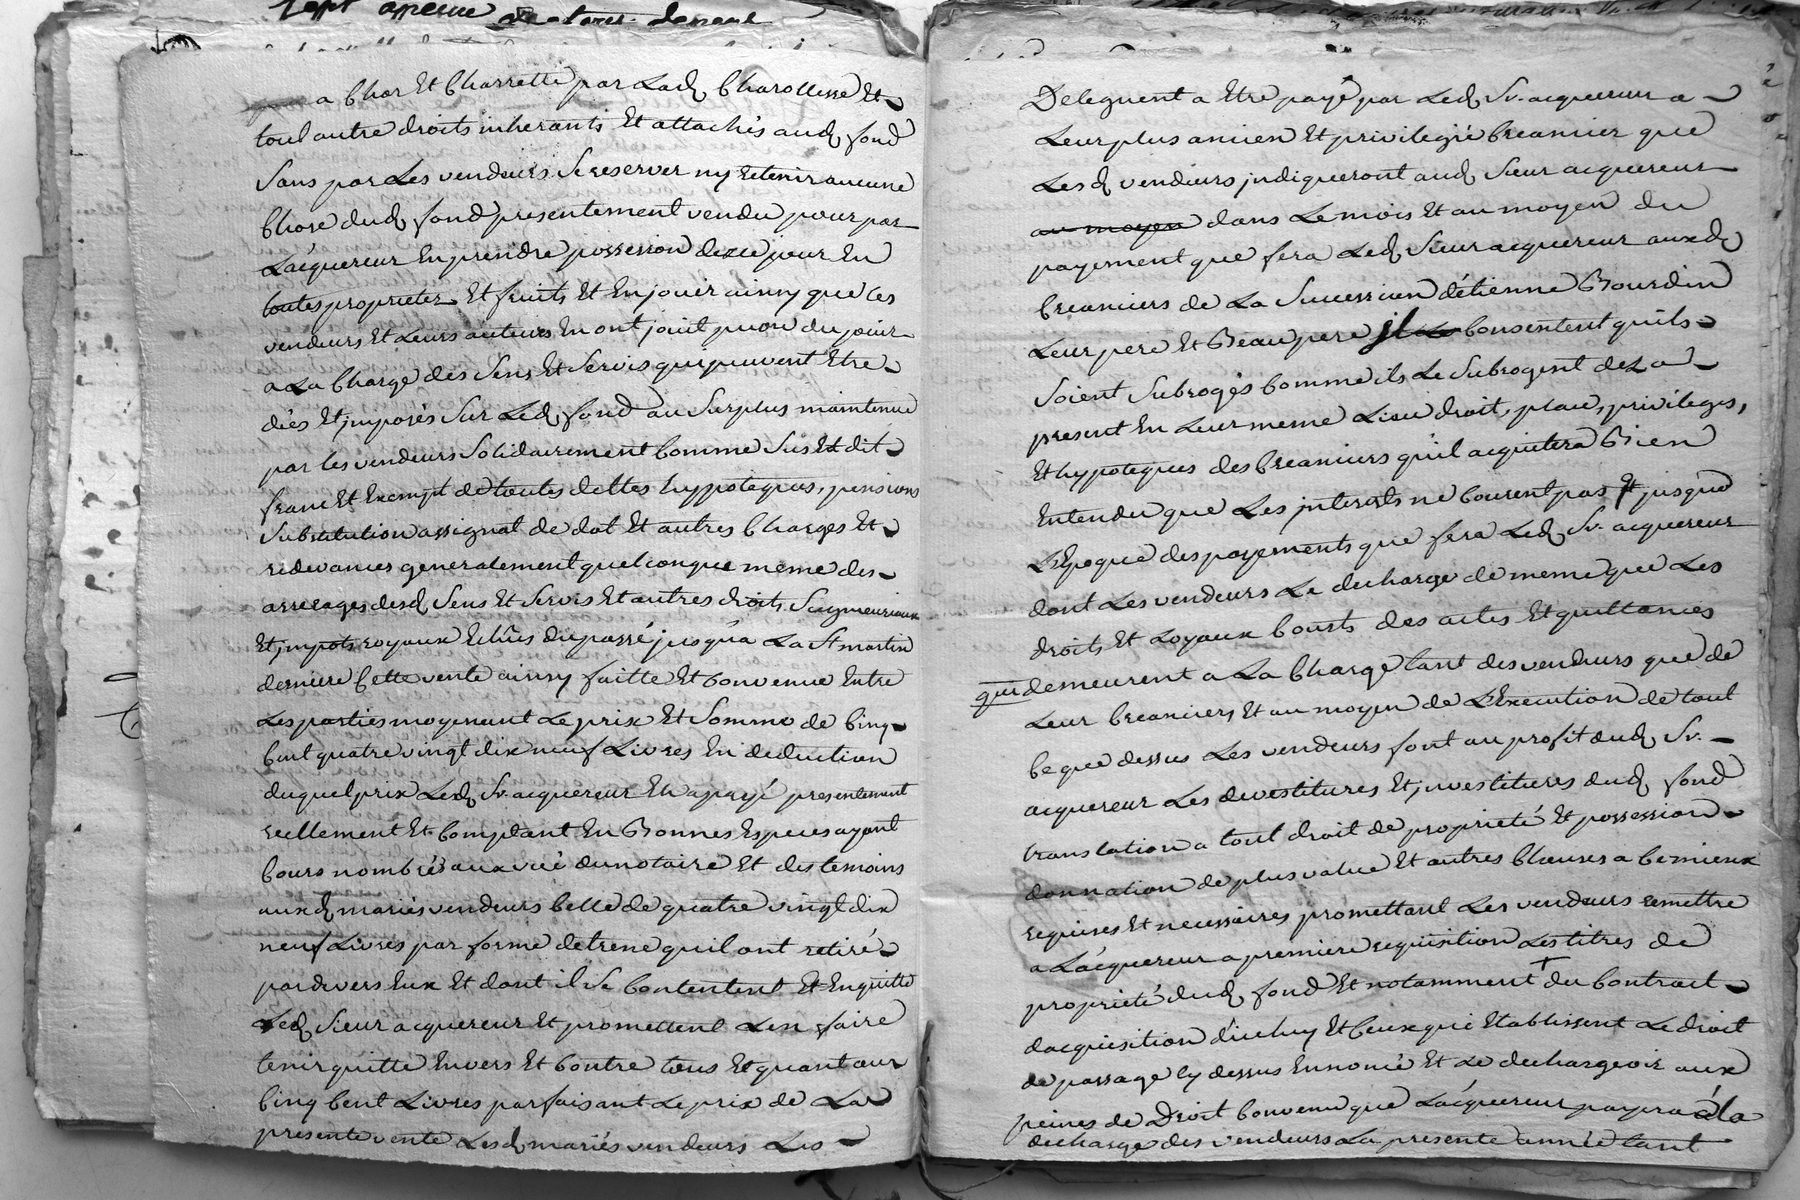 a Char Et Charrette par Lad Charollesse Et
tout autre droits inherants Et attachés aud fond
Sans par Les vendeurs Se reserver ny retenir aucune
Chose dud fond presentement vendu pour par
L'acquereur En prendre possession de ce jour En
toutes proprietez Et fruits Et En jouir ainsy que les
vendeurs Et Leurs auteurs En ont jouit pu ou du jouir
a La Charge des Sens Et Servis qui peuvent Etre
dûes Et jmposés Sur Led fond au Surplus maintenu
par les vendeurs Solidairement Comme Sus Est dit
franc Et Exempt de toutes dettes hyppoteques, pensions
Substitution assignat de dot Et autres Charges Et
redevances generalement quelconque meme des
arrerages desd Sens Et Servis Et autres droits Seigneuriaux
Et jmpots royaux Echûs du passé jusqu'a La St martin
derniere Cette vente ainsy faitte Et Convenue Entre
Les parties moyenant Le prix Et Somme de Cinq
Cent quatre vingt dix neuf Livres En deduction
duquel prix Led Sr. acquereur En a payé presentement
reellement Et Comptant En Bonnes Especes ayant
Cours nombrés aux vüe du notaire Et des temoins
auxd mariés vendeurs Celle de quatre vingt dix
neuf Livres par forme detrene qu'il ont retiré
par devers Eux Et dont il Se Contentent Et En quitte
Led Sieur acquereur Et promettent L'en faire
tenir quitte Envers Et Contre tous Et quant aux
Cinq Cent Livres parfaisant Le prix de La
presente vente Lesd mariés vendeurs Les
Deleguent a Etre payé par Led Sr. acquereur a
Leur plus ancien Et privilegié Creancier que
Lesd vendeurs jndiqueront aud Sieur acquereur
au moyen dans Le mois Et au moyen du
payement que fera Led Sieur acquereur auxd
Creanciers de La Succession d'étienne Bourdin
Leur pere Et Beau pere jl Consentent qu'ils
Soient Subrogés Comme ils Le Subrogent deza
present En Leur meme Lieu droit, place, privileges,
Et hypoteques des Creanciers qu'il acquitera Bien
Entendu que Les jnterets ne Courent pas jusqu'a
L'Epoque des payements que fera Led Sr. acquereur
dont Les vendeurs Le decharge de meme que Les
droits Et Loyaux Couts des actes Et quittances
qui demeurent a La Charge tant des vendeurs que de
Leur Creanciers Et au moyen de L'Execution de tout
Ce que dessus Les vendeurs font au profit dud Sr.
acquereur Les devestitures Et jnvestitures dud fond
translation a tout droit de proprieté Et possession
donnation de plus value Et autres Clauses a Ce mieux
requises Et necessaires promettant Les vendeurs remettre
a L'acquereur a premiere requisition Les titres de
proprieté dud fond Et notamment du Contract
dacquisition d'iceluy Et Ceux qui Etablissent Le droit
de passage Cy dessus Ennoncé Et Le dechargeoir aux
peines de Droit Convenu que L'acquereur payera a la
decharge des vendeurs La presente année tant